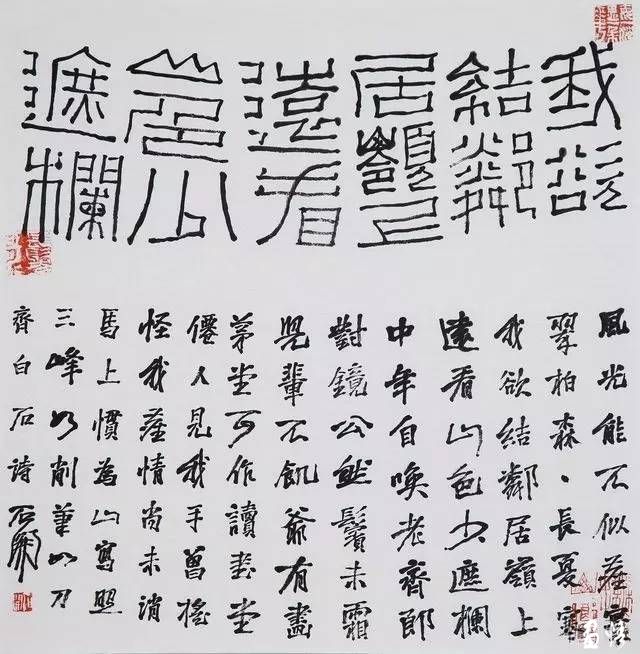 我欲
結鄰
居嶺上
遠看
山色少
遮欄
風光能不似塵寰
翠柏森、長夏寒
我欲結鄰居嶺上
遠看山色少遮欄
中年自喚老齊郎
對鏡公然鬢未霜
兒輩不飢爺有畫
茅堂可作讀書堂
僊人見我手曾搖
怪我塵情尚未消
馬上慣為山寫照
三峰如削筆如刀
齊白石詩 石開